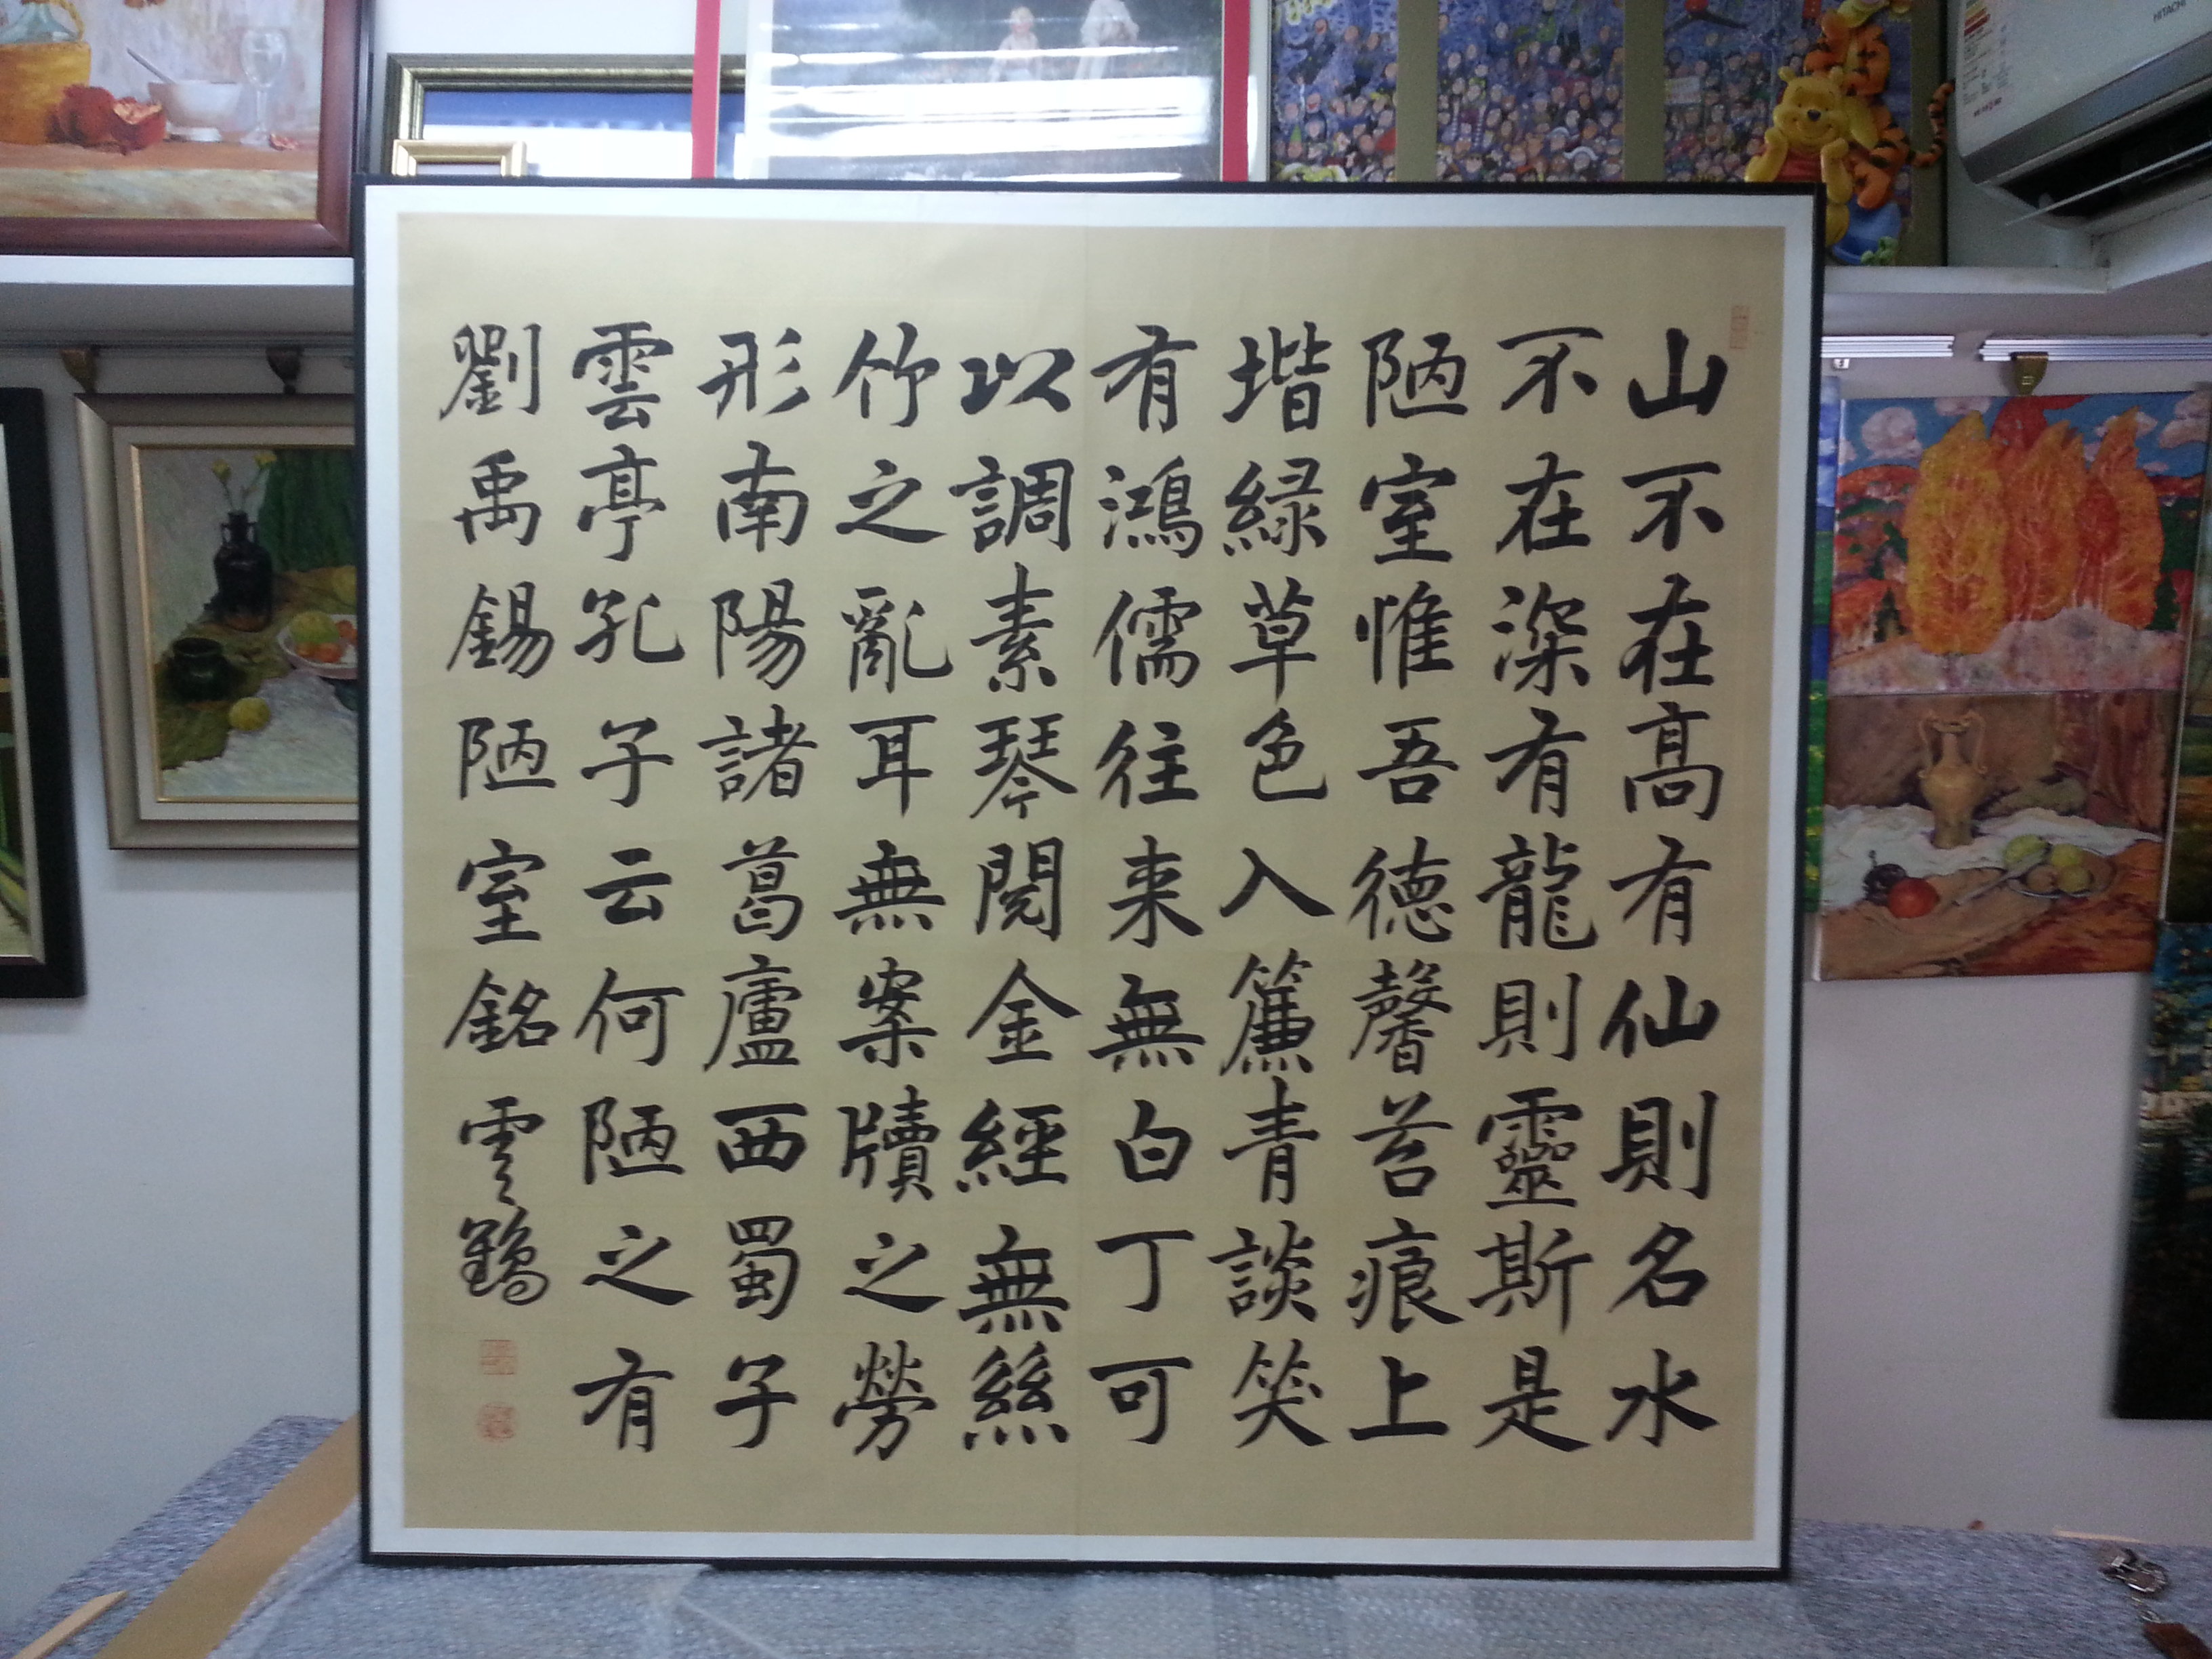 山不在髙有仙則名水
不在深有龍則靈斯是
陋室惟吾徳馨苔痕上
堦緑草色入簾青談笑
有鴻儒往来無白丁可
以調素琴閱金經無絲
竹之亂耳無案牘之勞
形南陽諸葛廬西蜀子
雲亭孔子云何陋之有
劉禹錫陋室銘雲鶴
HITACHI